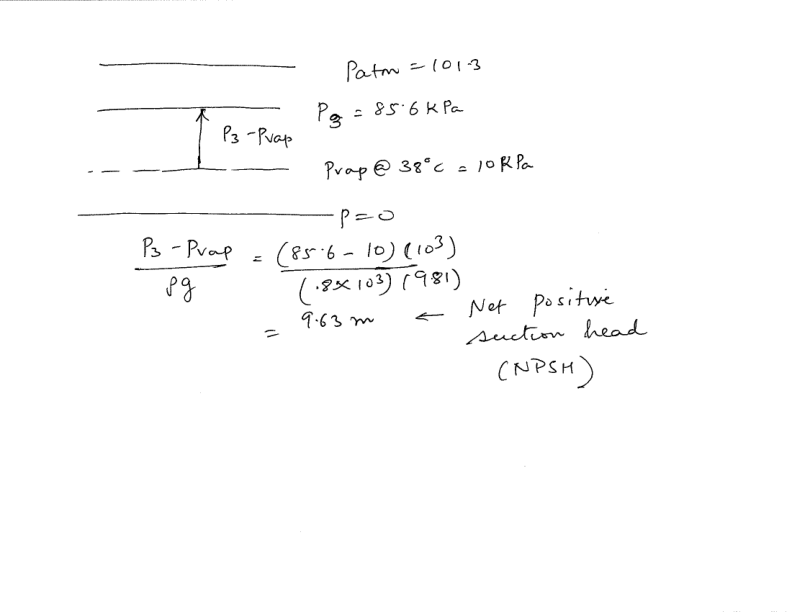 Patm = 101.3
P3 = 85.6 KPa
P3 - Pvap
Pvap @ 38°c = 10 KPa
P = 0
P3 - Pvap / ρg = (85.6 - 10) (10³) / (.8 × 10³) (9.81)
= 9.63 m ← Net positive
suction head
(NPSH)